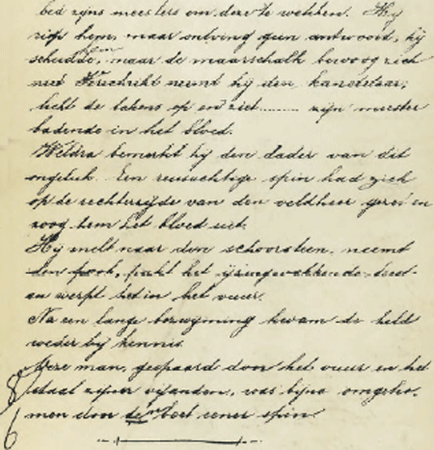 bed zijns meesters om deze te wekken. Hij
riep hem, maar ontving geen antwoord; hij
schudde hem, maar de maarschalk bewoog zich
niet Verschrikt neemt hij den kandelaar;
licht de lakens op en ziet......... zijn meester
badende in het bloed.
Weldra bemerkt hij den dader van dit
ongeluk. Een reusachtige spin had zich
op de rechterzijde van den veldheer gezet en
zoog hem het bloed uit.
Hij snelt naar den schoorsteen, neemt
pakt het ijzingwekkende
en werpt het in het vuur.
Na een lange bezwijming kwam de held
weder bij kennis.
Deze man, gespaard door het vuur en het
staal zijner vijanden, was bijna omgeko-
men door den beet eener spin.